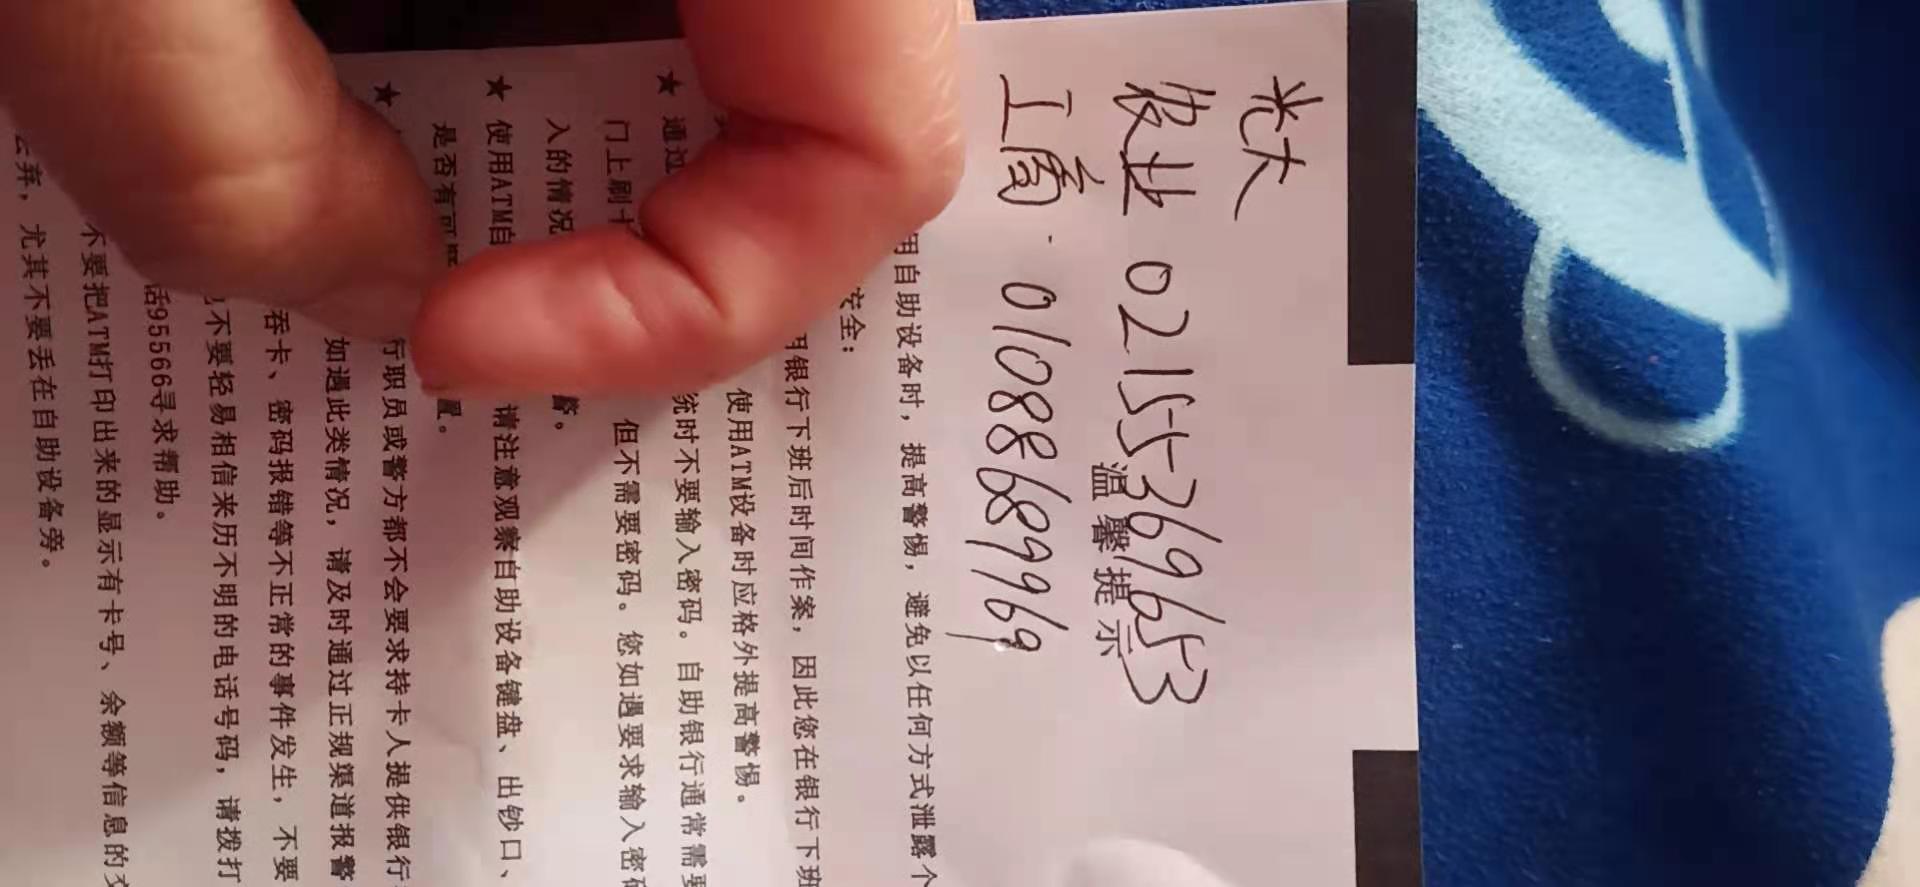 光大
农业 02155369653
温馨提示
工商. 01088689969
用自助设备时，提高警惕，避免以任何方式泄露个
安全：
用银行下班后时间作案，因此您在银行下班
使用ATM设备时应格外提高警惕。
★ 通过 统时不要输入密码。自助银行通常需要
门上刷卡 但不需要密码。您如遇要求输入密码
入的情况 警。
★ 使用ATM自 请注意观察自助设备键盘、出钞口、
是否有可 置。
★ 行职员或警方都不会要求持卡人提供银行
如遇此类情况，请及时通过正规渠道报警
吞卡、密码报错等不正常的事件发生，不要
不要轻易相信来历不明的电话号码，请拨打
话95566寻求帮助。
不要把ATM打印出来的显示有卡号、余额等信息的交
弃，尤其不要丢在自助设备旁。